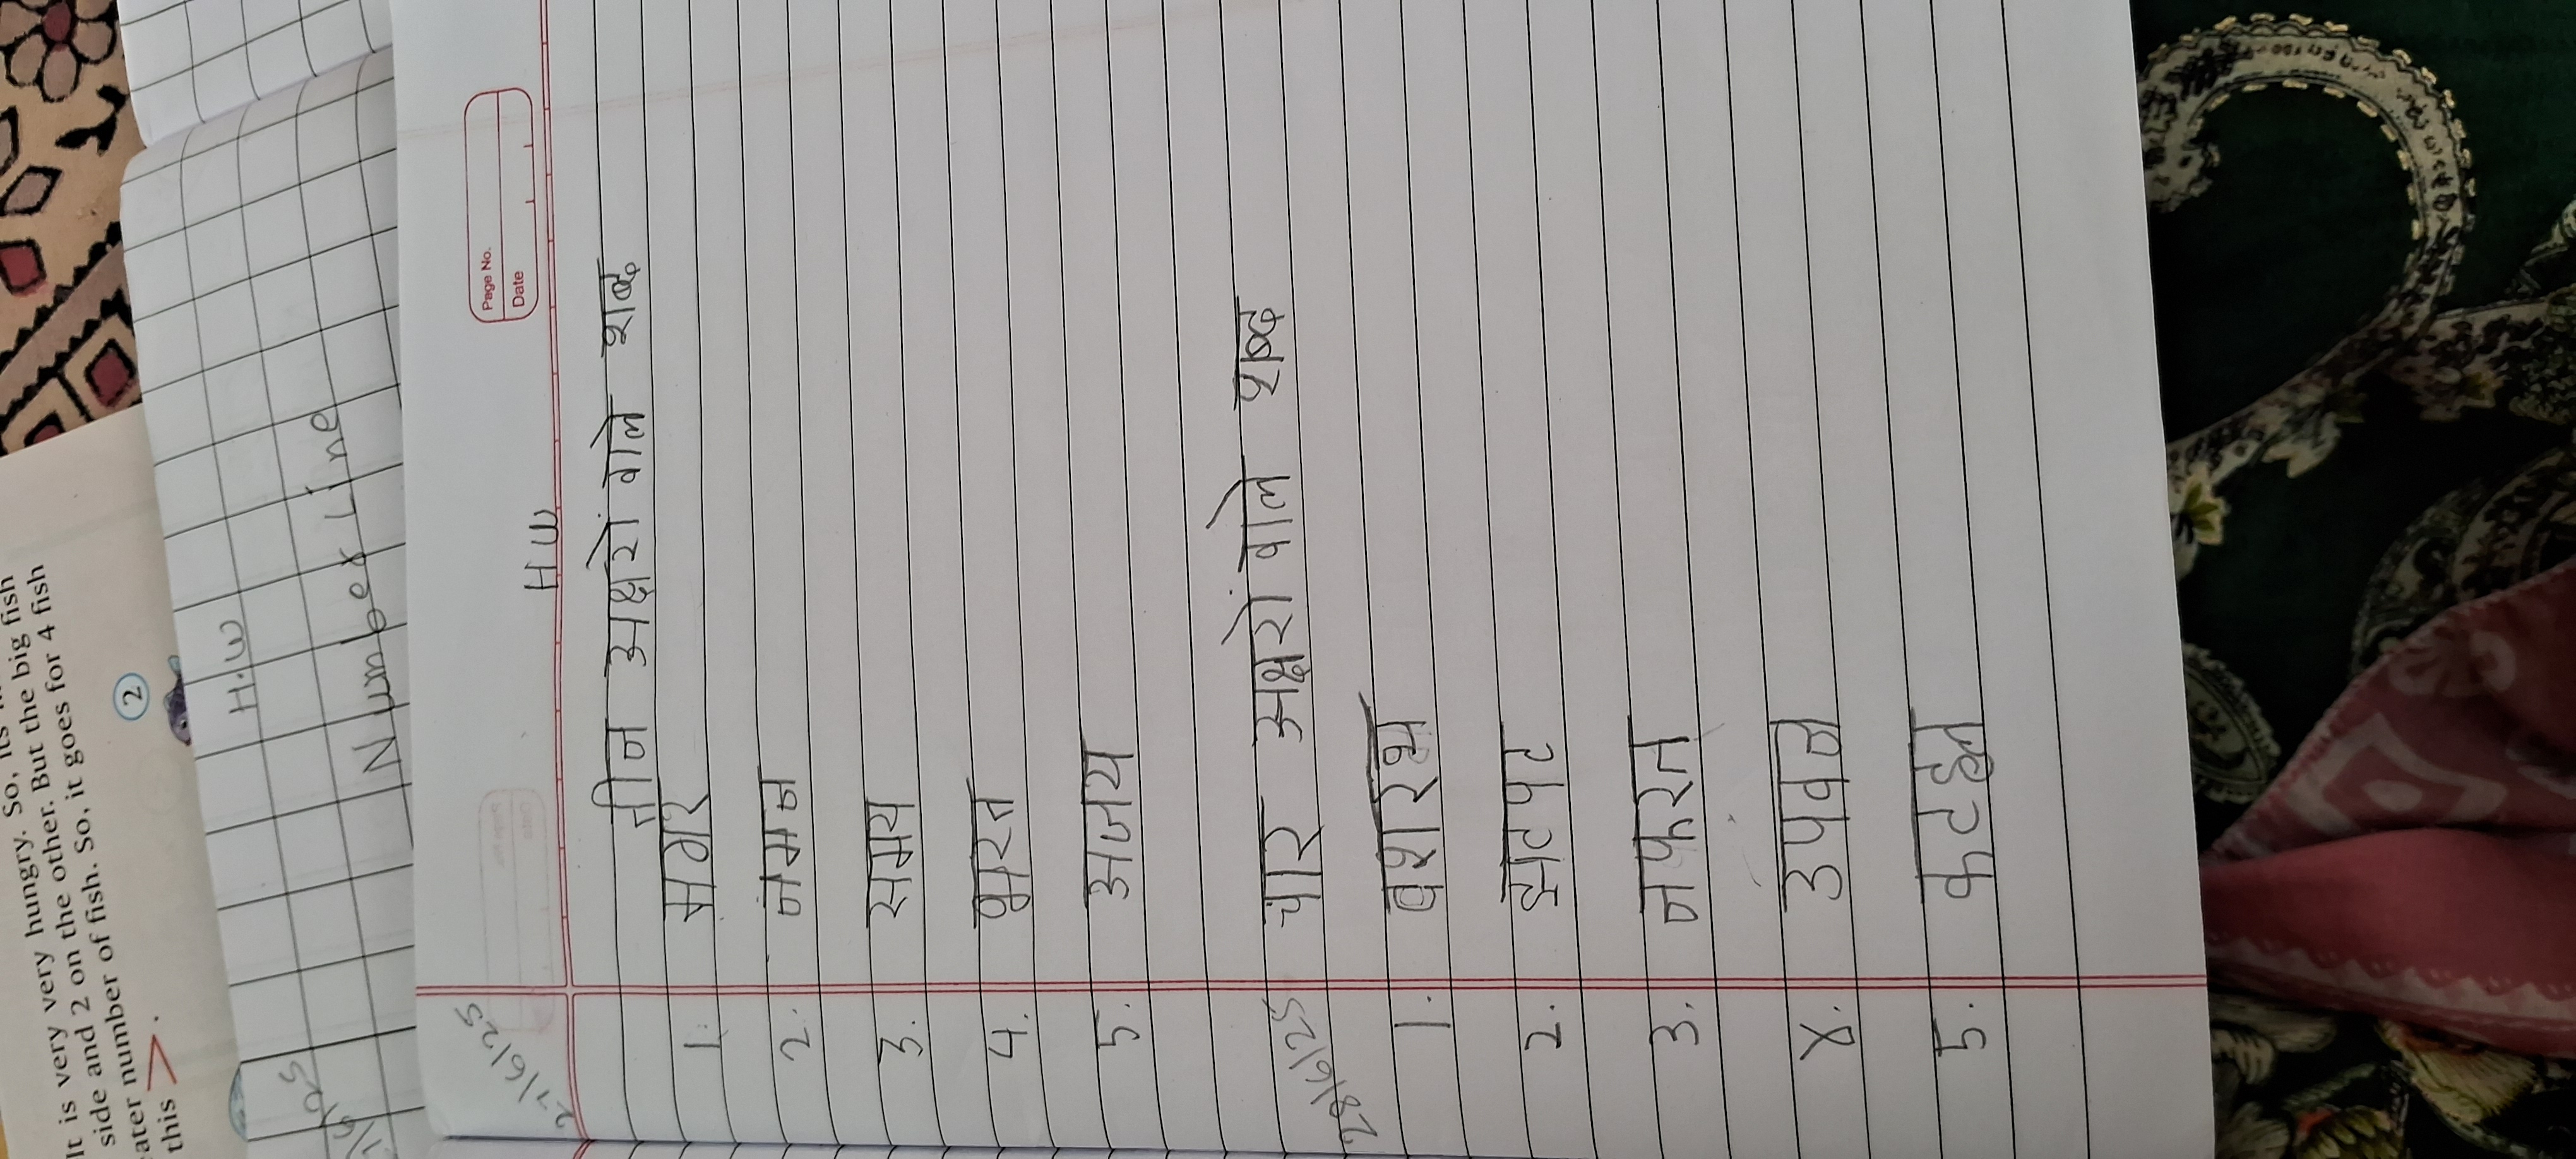 It is very very very hungry. So, its
side and 2 on the other. But the big fish
eater number of fish. So, it goes for 4 fish
this >.
2
H.W
Number Line
Page No.
Date
H W
27/6/25
तीन अक्षरों वाले शब्द
1. मगर
2. नमन
3. समय
4. भारत
5. अजय
28/6/25
चार अक्षरों वाले शब्द
1.
2. झटपट
3. नफरत
४. उपवन
5. कटहल